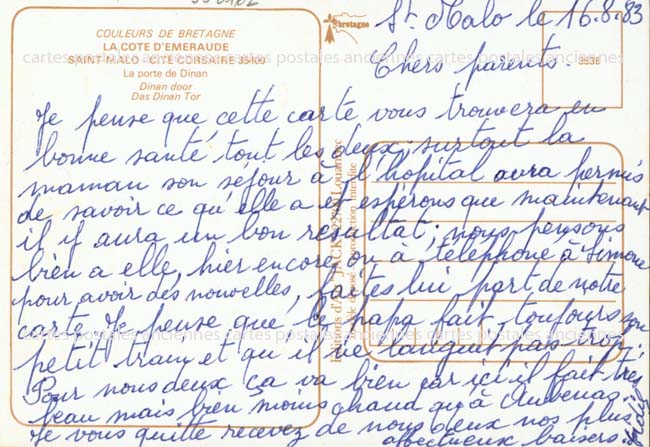 St Malo le 16.8.83
Chers parents.
COULEURS DE BRETAGNE
LA COTE D'EMERAUDE
SAINT-MALO - CITE CORSAIRE 35400
La porte de Dinan
Dinan door
Das Dinan Tor
bretagne
3538
cartes postales anciennes cartes postales anciennes cartes postales anciennes
Je pense que cette carte vous trouvera en
bonne santé tout les deux; surtout la
maman son séjour à l'hôpital aura permis
de savoir ce qu'elle a et espérons que maintenant
il y aura un bon résultat; nous pensons
bien a elle, hier encore on à téléphoné à Simone
pour avoir des nouvelles, faites lui part de notre
carte. Je pense que le papa fait toujours son
petit train et qu'il ne languit pas trop;
Pour nous deux ça va bien car içi il fait très
beau mais bien moins chaud qu'à Aubenas.
Je vous quitte recevez de nous deux nos plus
affectueux baisers
Editions d'Art JACK Louannec
reproduction interdite
cartes postales anciennes cartes postales anciennes cartes postales anciennes